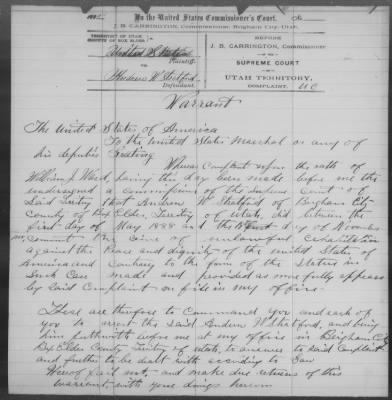 In the United States Commissioner's Court.
J. B. CARRINGTON, Commissioner, Brigham City, Utah.
TERRITORY OF UTAH
COUNTY OF BOX ELDER
Plaintiff.
vs
Andrew W. Shelford
Defendant.
BEFORE
J. B. CARRINGTON, Commissioner
SUPREME COURT
OF
UTAH TERRITORY,
COMPLAINT. U C
Warrant
The United States of America
To the United States Marshal or any of
his deputies Greeting
Whereas Complaint upon the oath of
William J. Ward, having this day been made before me the
undersigned a Commissioner of the Supreme Court of
Said Territory that Andrew W Shelford of Brigham City
County of Box Elder, Territory of Utah, did between the
first day of May 1888 and the day of November
Commit the Crime of unlawful Cohabitation
against the Peace and dignity of the United States of
America and Contrary to the form of the Statute in
Such Case made and provided as more fully appears
by said Complaint on file in my office.
These are therefore to Command you and each of
you to arrest the said Andrew W Shelford, and bring
him forthwith before me at my office in Brigham City
Box Elder County Territory of Utah, to answer to said Complaint
and further to be dealt with according to Law
Hereof fail not, and make due return of this
warrant with your doings hereon